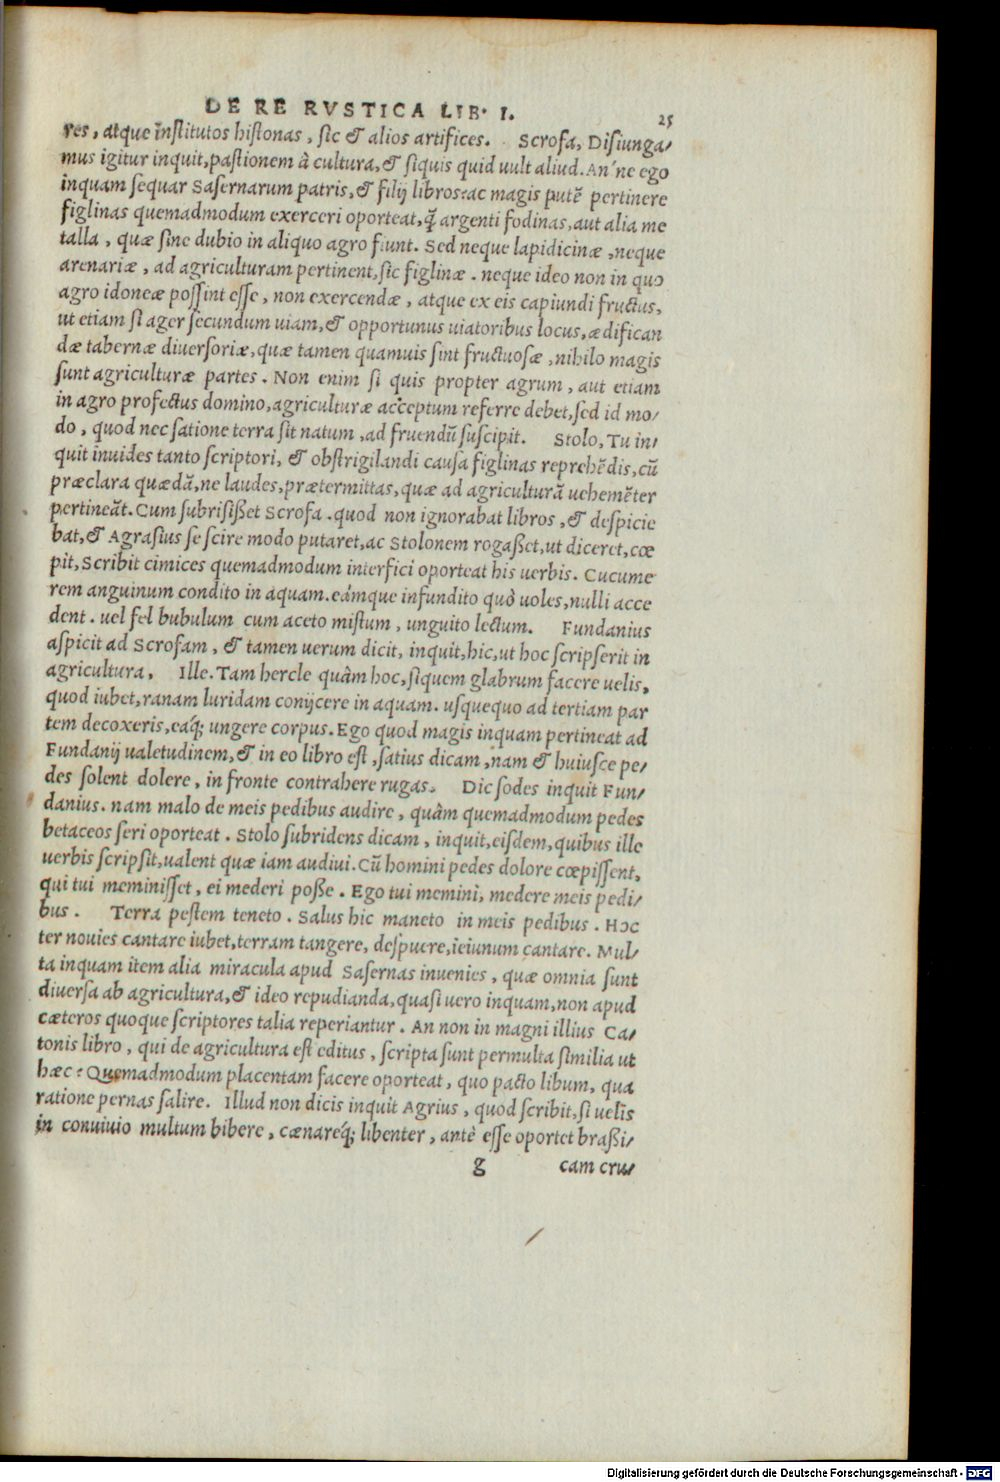 DE RE RVSTICA LIB. I. 25
res, atque institutos histonas, sic & alios artifices. Scrofa, Disiunga/
mus igitur inquit, pastionem à cultura, & siquis quid uult aliud. An´ne ego
inquam sequar Sasernarum patris, & filij libros: ac magis putẽ pertinere
figlinas quemadmodum exerceri oporteat, q̃ argenti fodinas, aut alia me
talla, quæ sine dubio in aliquo agro fiunt. Sed neque lapidicinæ, neque
arenariæ, ad agriculturam pertinent, sic figlinæ. neque ideo non in quo
agro idoneæ possint esse, non exercendæ, atque ex eis capiundi fructus,
ut etiam si ager secundum uiam, & opportunus uiatoribus locus, ædifican
dæ tabernæ diuersoriæ, quæ tamen quamuis sint fructuosæ, nihilo magis
sunt agriculturæ partes. Non enim si quis propter agrum, aut etiam
in agro profectus domino, agriculturæ acceptum referre debet, sed id mo/
do, quod nec satione terra sit natum, ad fruendũ suscipit. Stolo, Tu in/
quit inuides tanto scriptori, & obstrigilandi causa figlinas reprehẽdis, cũ
præclara quædã, ne laudes, prætermittas, quæ ad agriculturã uehemẽter
pertineãt. Cum subrisißet Scrofa. quod non ignorabat libros, & despicie
bat, & Agrasius se scire modo putaret, ac Stolonem rogaßet, ut diceret, cœ
pit, Scribit cimices quemadmodum interfici oporteat his uerbis. Cucume
rem anguinum condito in aquam. eámque infundito quò uoles, nulli acce
dent. uel fel bubulum cum aceto mistum, unguito lectum. Fundanius
aspicit ad Scrofam, & tamen uerum dicit, inquit, hic, ut hoc scripserit in
agricultura, Ille. Tam hercle quàm hoc, siquem glabrum facere uelis,
quod iubet, ranam luridam conijcere in aquam. usquequo ad tertiam par
tem decoxeris, eáq; ungere corpus. Ego quod magis inquam pertineat ad
Fundanij ualetudinem, & in eo libro est, satius dicam, nam & huiusce pe/
des solent dolere, in fronte contrahere rugas. Dic sodes inquit Fun/
danius. nam malo de meis pedibus audire, quàm quemadmodum pedes
betaceos seri oporteat. Stolo subridens dicam, inquit, eisdem, quibus ille
uerbis scripsit, ualent quæ iam audiui. Cũ homini pedes dolore cœpissent,
qui tui meminisset, ei mederi poße. Ego tui memini, medere meis pedi/
bus. Terra pestem teneto. Salus hic maneto in meis pedibus. Hoc
ter nouies cantare iubet, terram tangere, despuere, ieiunum cantare. Mul/
ta inquam item alia miracula apud Sasernas inuenies, quæ omnia sunt
diuersa ab agricultura, & ideo repudianda, quasi uero inquam, non apud
cæteros quoque scriptores talia reperiantur. An non in magni illius Ca/
tonis libro, qui de agricultura est editus, scripta sunt permulta similia ut
hæc: Quemadmodum placentam facere oporteat, quo pacto libum, qua
ratione pernas salire. Illud non dicis inquit Agrius, quod scribit, si uelis
in conuiuio multum bibere, cænaréq; libenter, antè esse oportet braßi/
g cam cru/
Digitalisierung gefördert durch die Deutsche Forschungsgemeinschaft - DFG